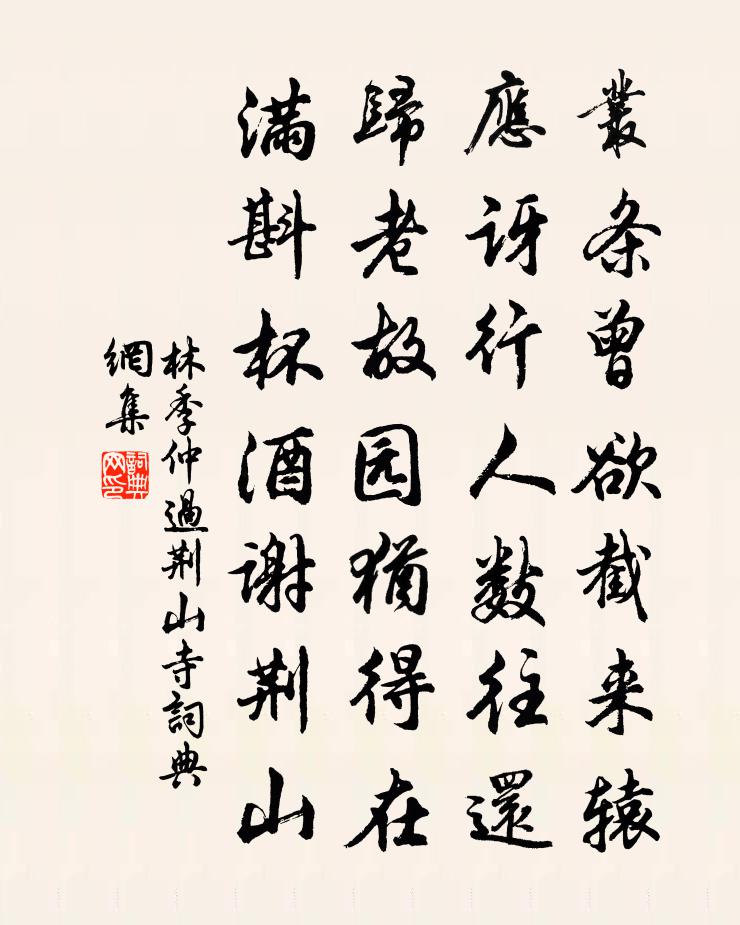 叢条曾欲截来辕
應讶行人數往還
歸老故园猶得在
满斟杯酒谢荆山
林季仲過荆山寺詞典
網集
詞典
网印